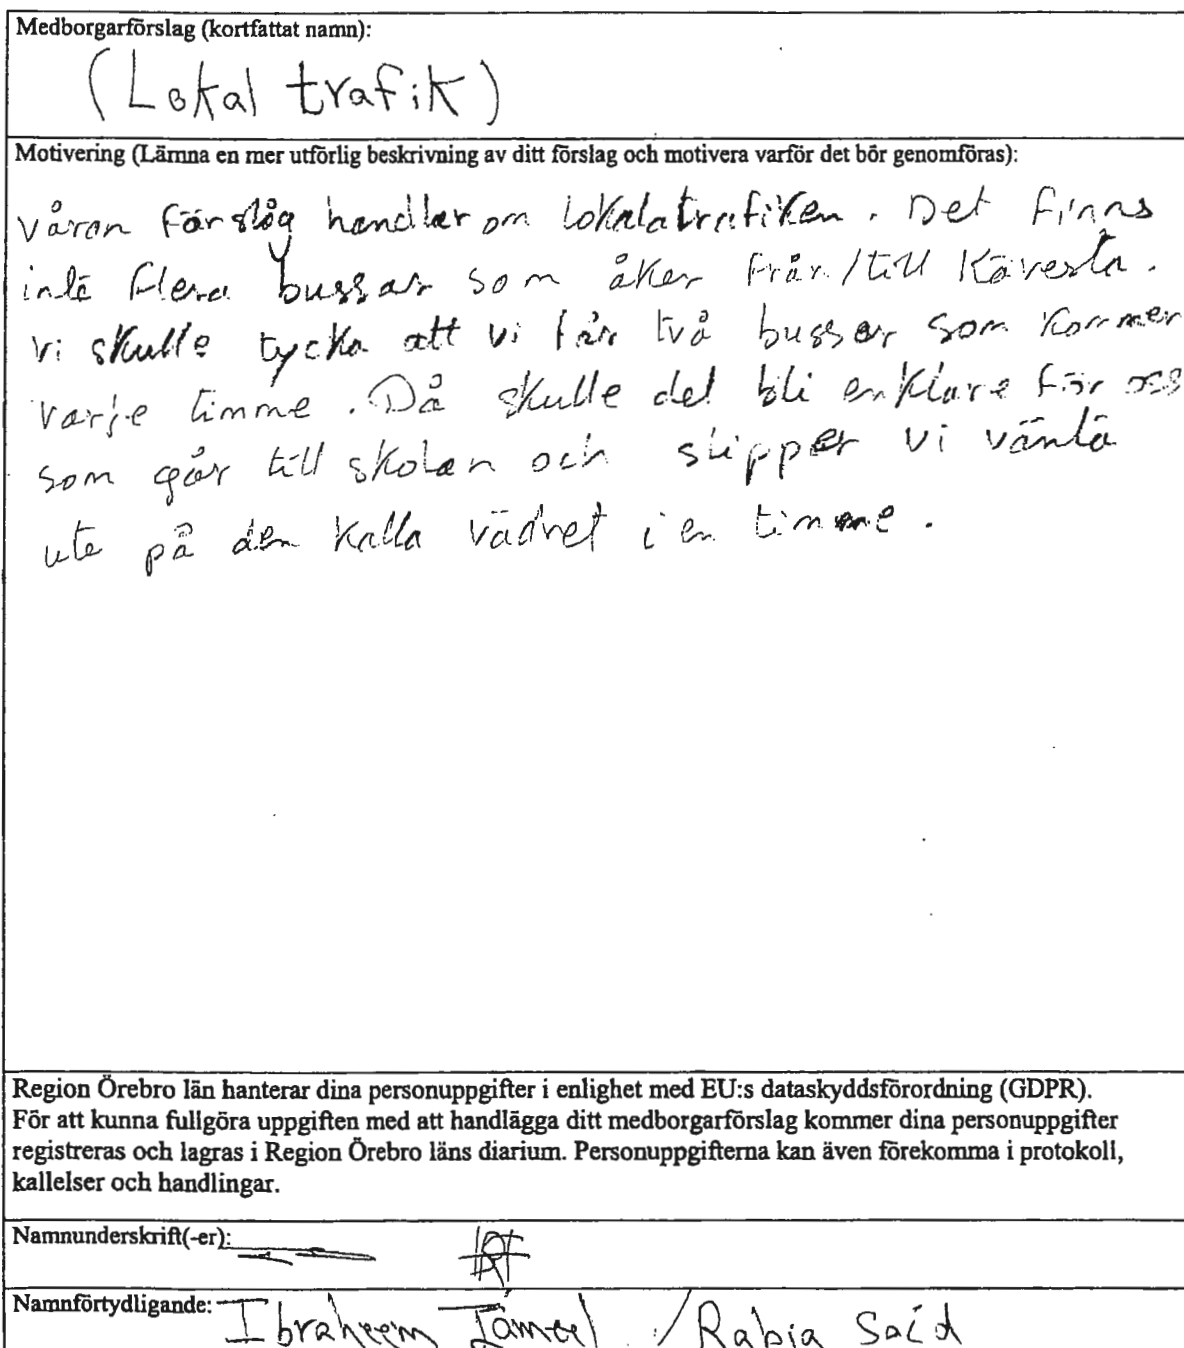 Medborgarförslag (kortfattat namn):
(Lokal trafik)
Motivering (Lämna en mer utförlig beskrivning av ditt förslag och motivera varför det bör genomföras):
våran förslåg handlar om lokalatrafiken. Det finns
inte flera bussar som åker från/till Kävesta.
vi skulle tycka att vi får två bussar som kommer
varje timme. Då skulle det bli enklare för oss
som går till skolan och slipper vi vänta
ute på den kalla vädret i en timme.
Region Örebro län hanterar dina personuppgifter i enlighet med EU:s dataskyddsförordning (GDPR).
För att kunna fullgöra uppgiften med att handlägga ditt medborgarförslag kommer dina personuppgifter
registreras och lagras i Region Örebro läns diarium. Personuppgifterna kan även förekomma i protokoll,
kallelser och handlingar.
Namnunderskrift(-er):
Namnförtydligande: Ibraheem / Rabia Said